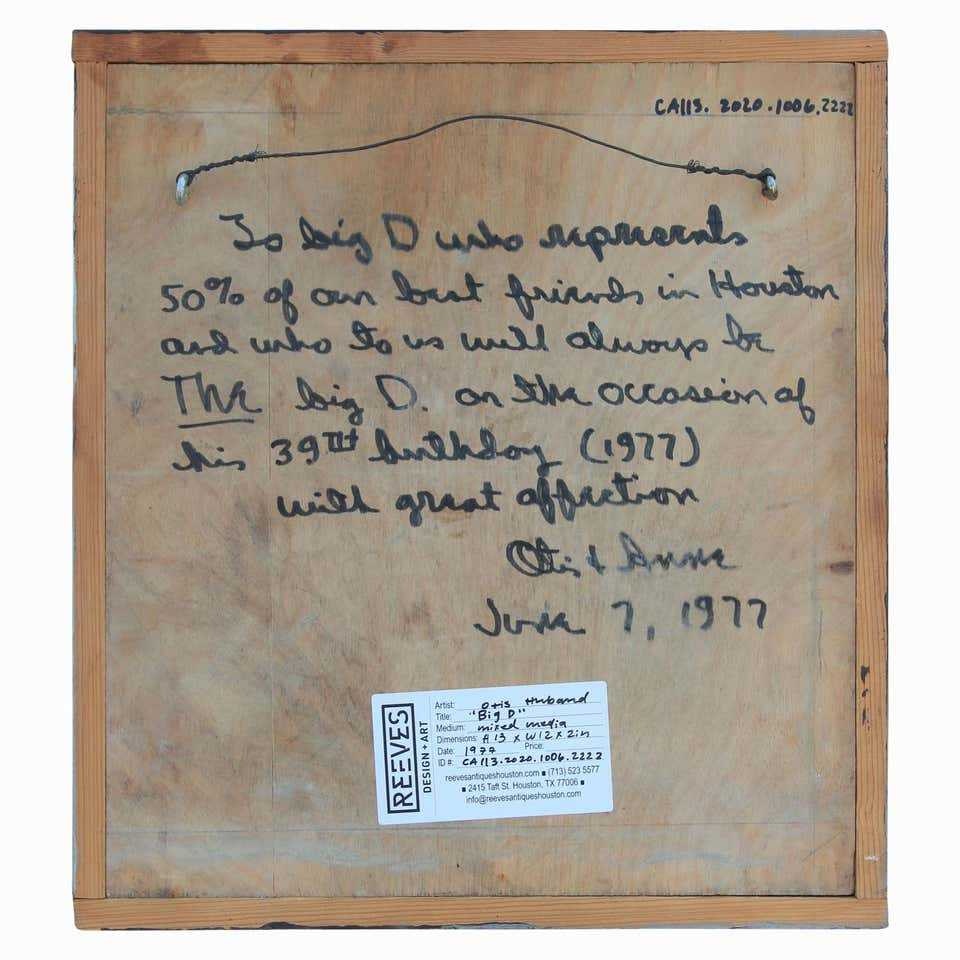 CA113. 2020.1006.2222
To big D who represents
50% of our best friends in Houston
and who to us will always be
THE big D. on the occasion of
his 39TH birthday (1977)
with great affection
Otis & Anne
June 7, 1977
REEVES
DESIGN + ART
Artist: Otis Huband
Title: "Big D"
Medium: mixed media
Dimensions: H 13 x W 12 x 2in
Date: 1977 Price:
ID#: CA113.2020.1006.2222
reevesantiqueshouston.com ■ (713) 523 5577
■ 2415 Taft St. Houston, TX 77006 ■
info@reevesantiqueshouston.com